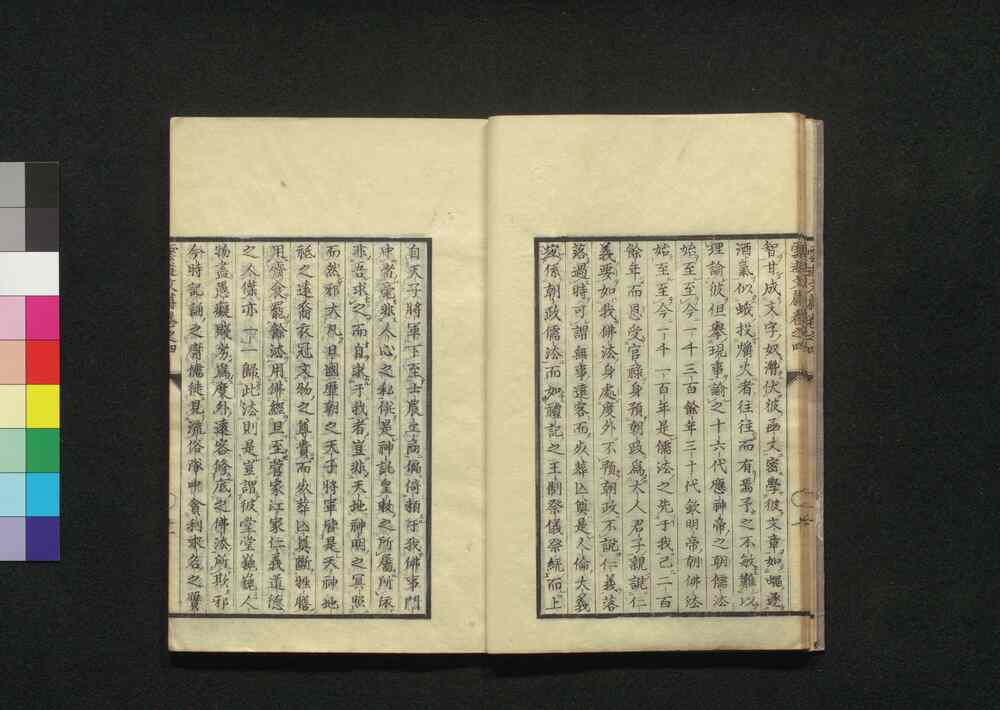 智甘成文字奴潛伏彼函丈密學彼文章如蠅逐
酒氣似蛾投爛火者往往而有焉予之不敏難以
理論彼但擧現事諭之十六代應神帝之朝儒法
始至至今一千三百餘年三十代欽明帝朝佛法
始至至今一千一百年是儒法之先于我已二百
餘年而恩受官祿身預朝政爲大人君子親説仁
義要如我佛法身處度外不預朝政不説仁義落
落過時可謂無事遠客而必葬亡奠是人倫大義
必係朝政儒法而如禮記之王制祭儀祭統而上
自天子將軍下至士農工商偏倚頼于我佛事門
中者毫非人心之私候是神託皇敕之所屬所依
非吾求之而自求于我者豈非天地神明之冥照
而然邪大凡旦國歷朝之天子將軍雖是天神地
祇之遠裔衣冠文物之尊貴而必葬亡奠斷牲膳
用齋食罷餘法用佛經且至菅家江家仁義道德
之人儒亦一一歸此法則是豈謂彼堂堂巍巍人
物盡愚癡賤劣爲度外遠客修底之佛法所欺邪
今時記誦之庸儒徒見流俗隊中貪利求名之賣